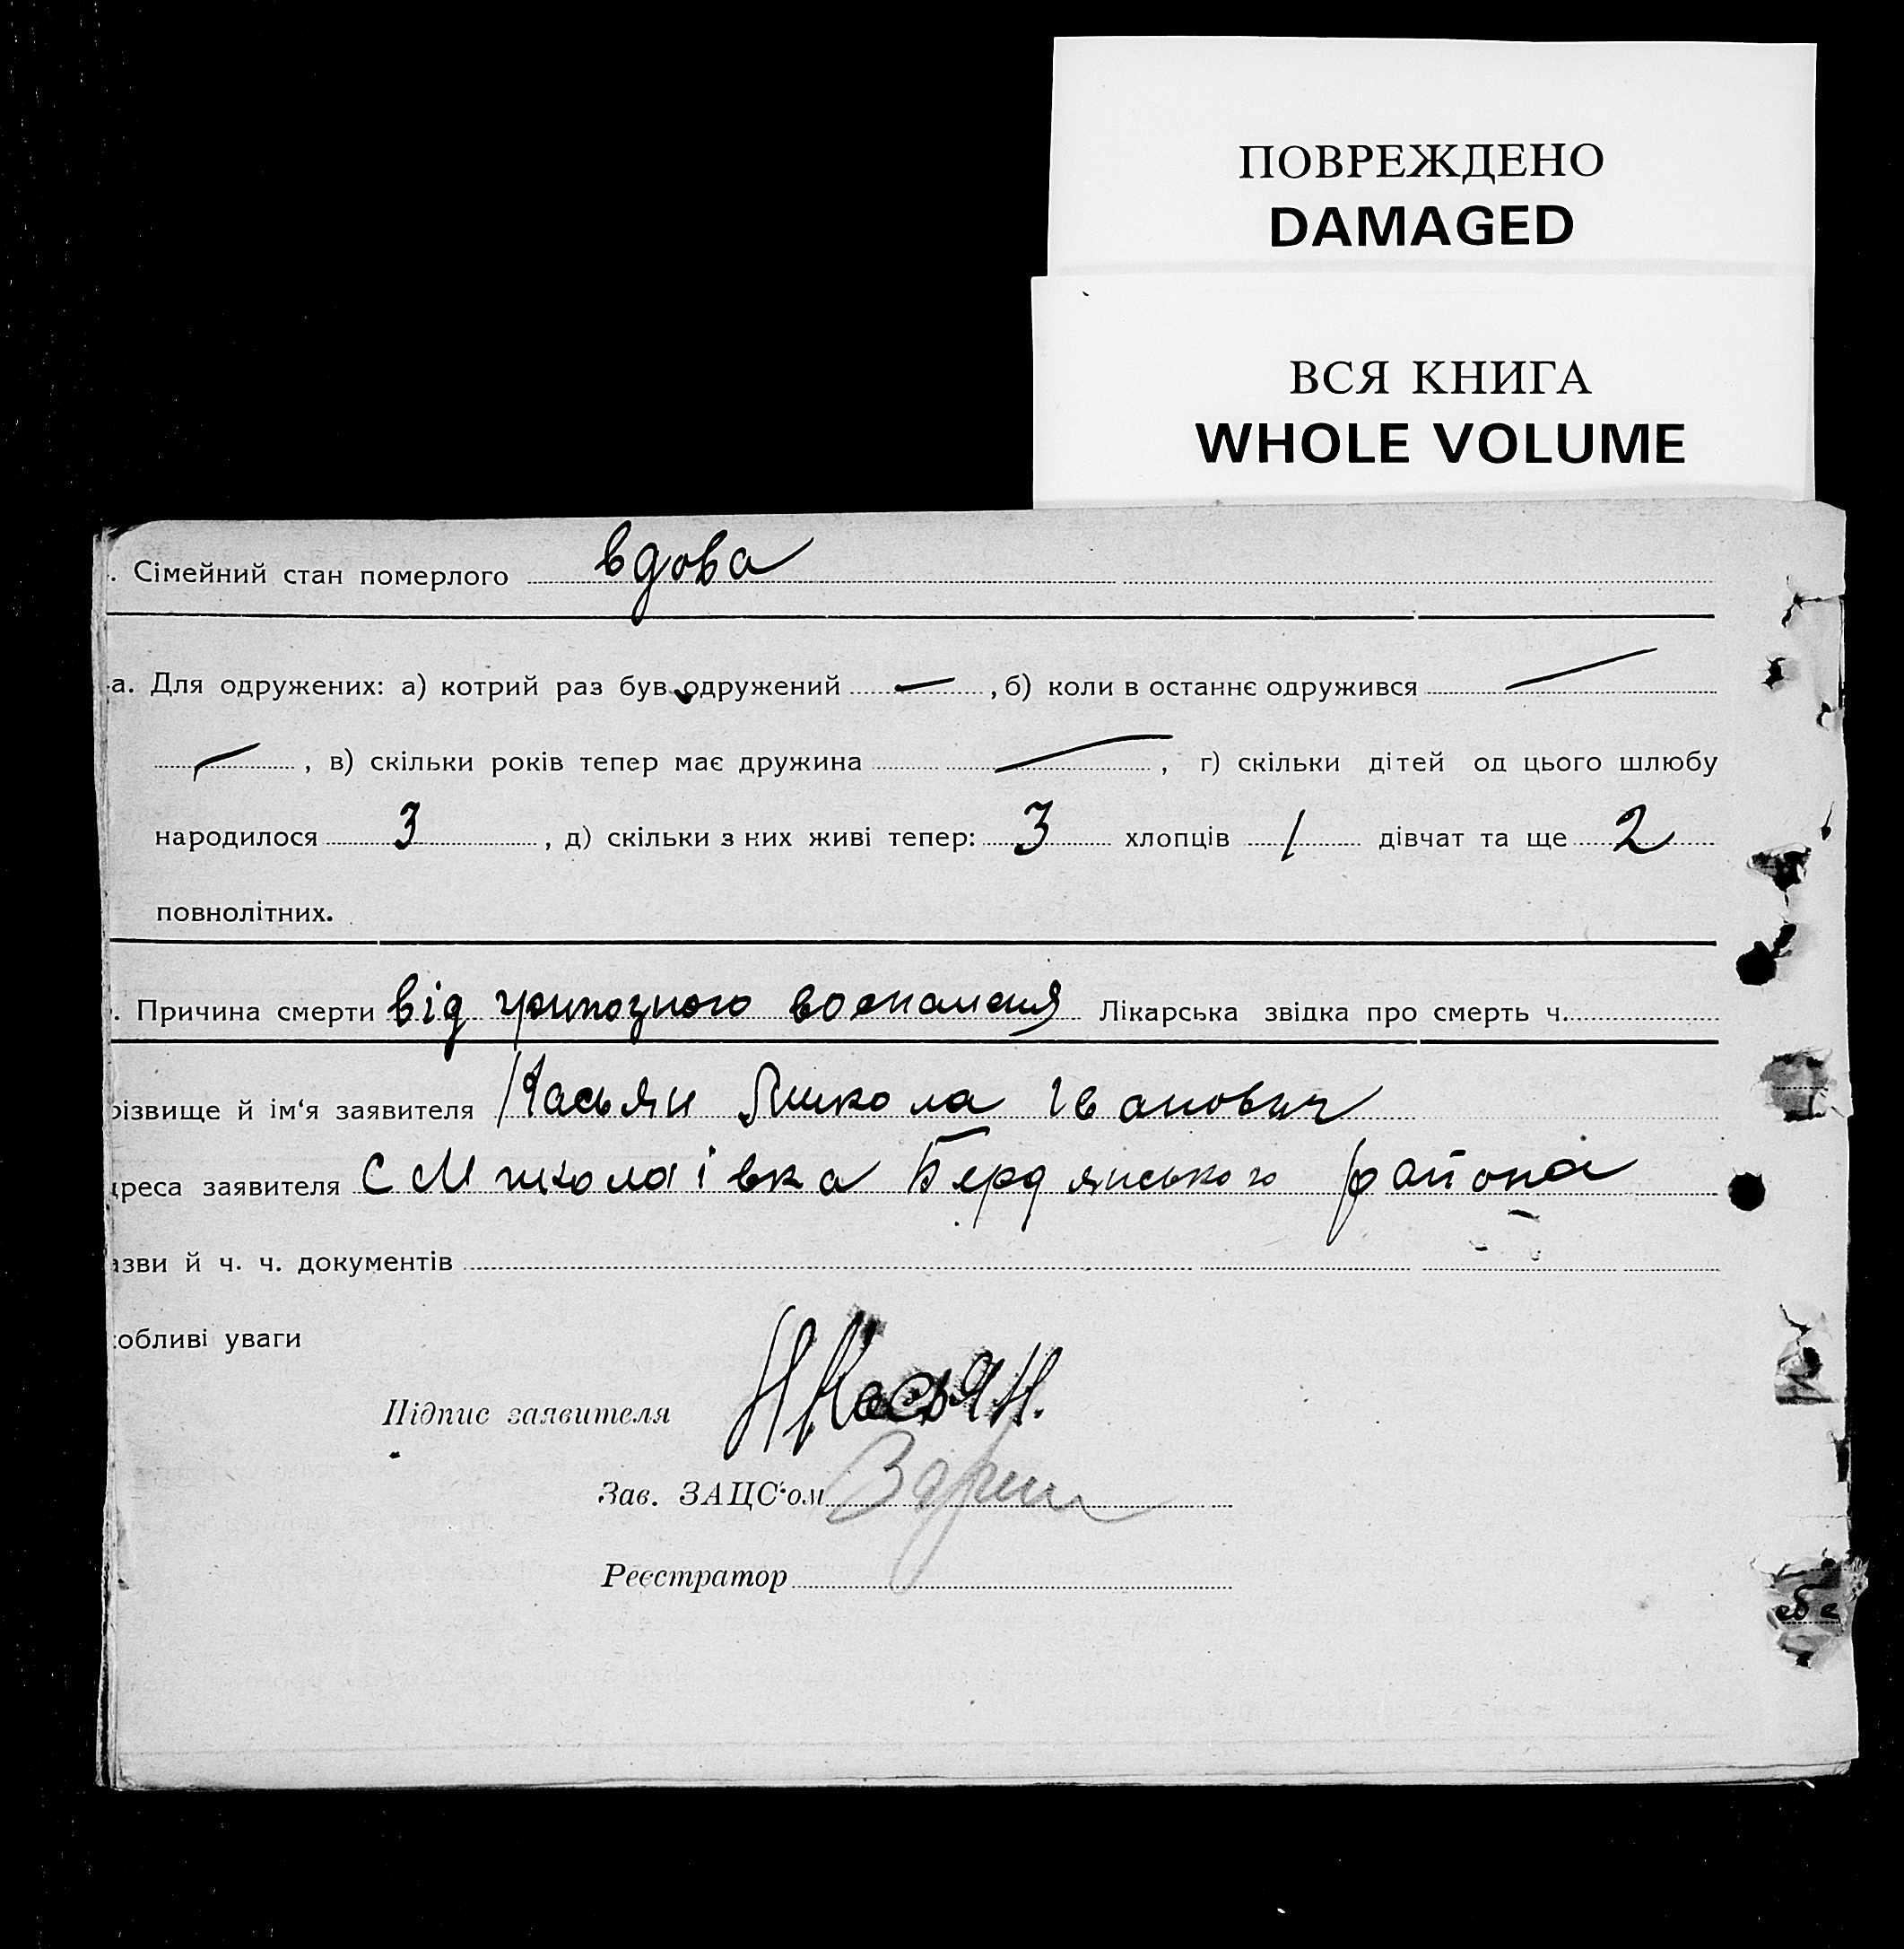 ПОВРЕЖДЕНО
DAMAGED
ВСЯ КНИГА
WHOLE VOLUME
. Сімейний стан померлого вдова
а. Для одружених: а) котрий раз був одружений — , б) коли в останнє одружився —
— , в) скільки років тепер має дружина — , г) скільки дітей од цього шлюбу
народилося 3 , д) скільки з них живі тепер: 3 хлопців 1 дівчат та ще 2
повнолітних.
. Причина смерти від грипозного воспаления Лікарська звідка про смерть ч.
різвище й ім‘я заявителя Касьян Микола Іванович
дреса заявителя С Миколаівка Бердянського района
азви й ч. ч. документів
собливі уваги
Підпис заявителя Н Касьян.
Зав. ЗАЦС‘ом
Реєстратор